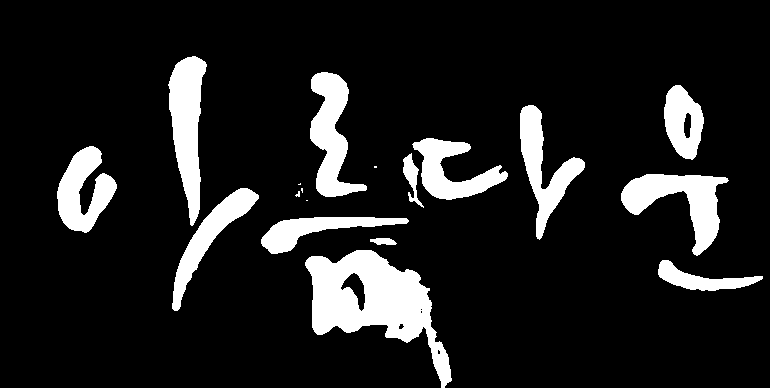 아름다운